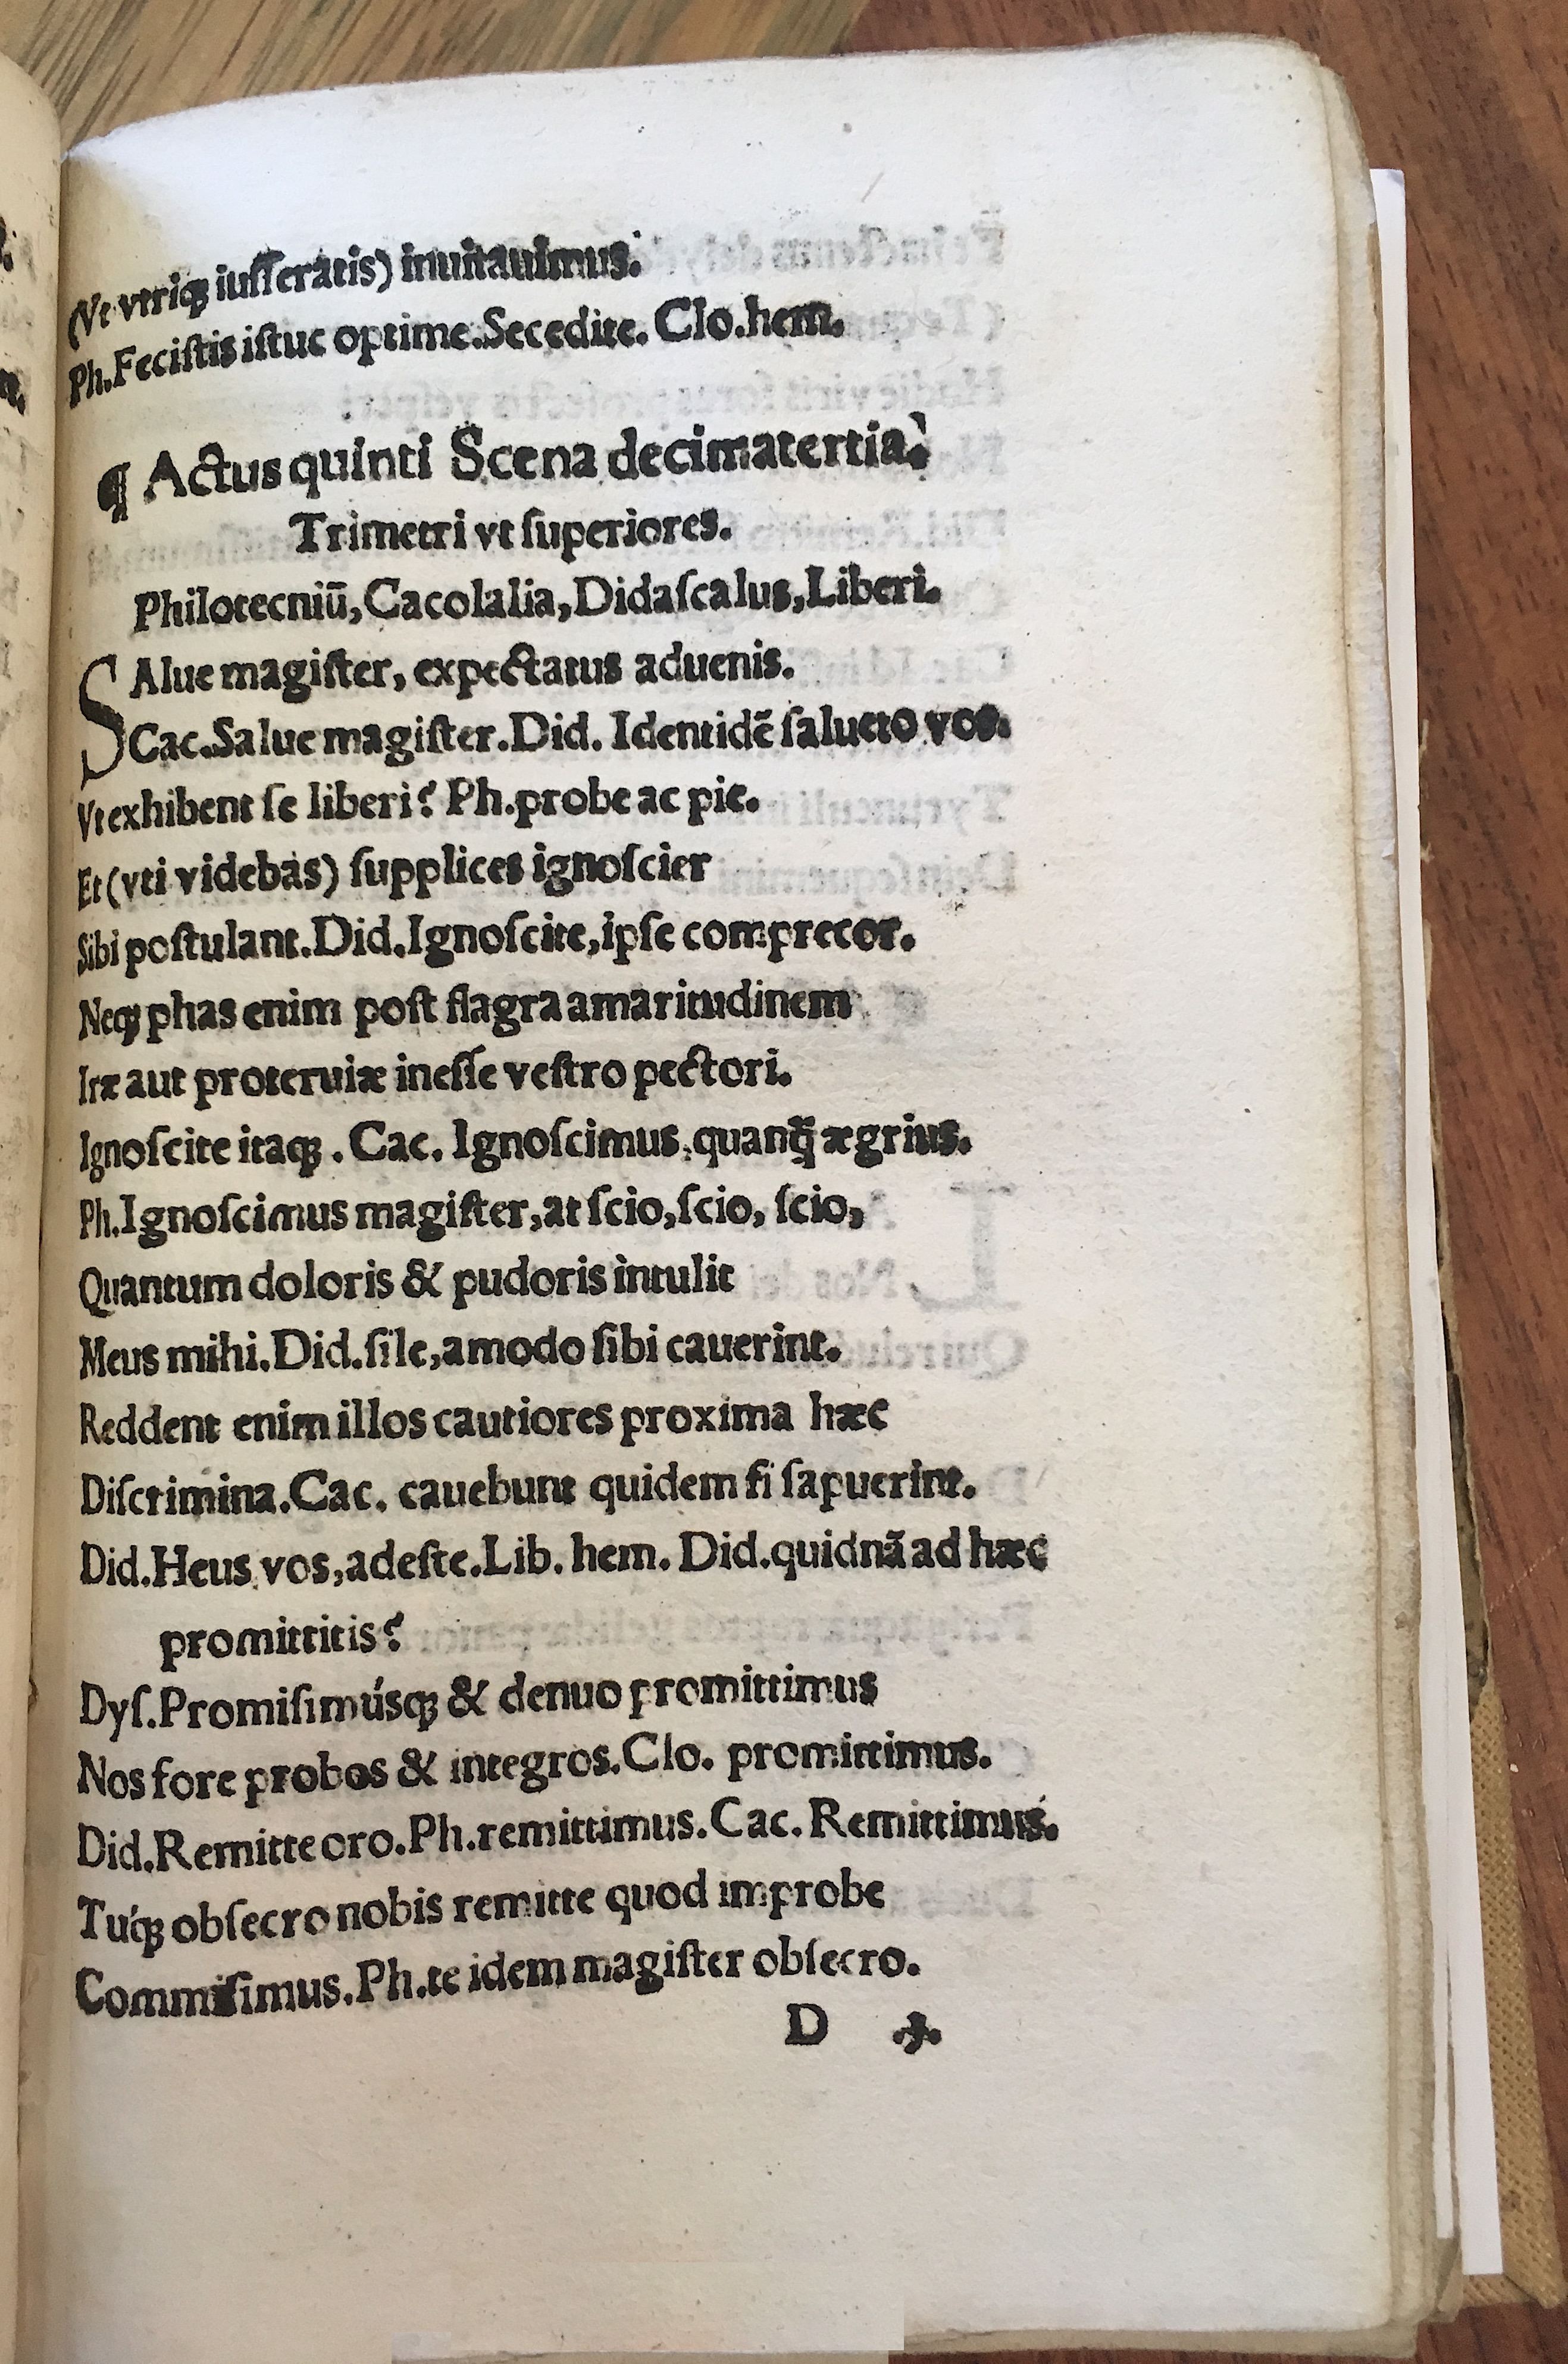 (Vt vtriqꝫ iuſſeratis) inuitauimus.
Ph.Feciſtis iſtuc optime.Secedite. Clo.hem.
¶ Actus quinti Scena decimatertia.
Trimetri vt ſuperiores.
Philotecniū,Cacolalia,Didaſcalus,Liberi.
SAlue magiſter, expectatus aduenis.
Cac.Salue magiſter.Did. Identidē ſalueto vos.
Vt exhibent ſe liberi? Ph.probe ac pie.
Et (vti videbas) ſupplices ignoſcier
Sibi poſtulant.Did.Ignoſcite,ipſe comprecor.
Neqꝫ phas enim poſt flagra amaritudinem
Iræ aut proteruiæ ineſſe veſtro pectori.
Ignoſcite itaqꝫ. Cac. Ignoſcimus,quanq̃ ægrius.
Ph.Ignoſcimus magiſter,at ſcio,ſcio, ſcio,
Quantum doloris & pudoris intulit
Meus mihi.Did.ſile,amodo ſibi cauerint.
Reddent enim illos cautiores proxima hæc
Diſcrimina.Cac. cauebunt quidem ſi ſapuerint.
Did.Heus vos,adeſte.Lib. hem. Did.quidnã ad hæc
promittitis?
Dyſ.Promiſimúsqꝫ & denuo promittimus
Nos fore probos & integros.Clo. promittimus.
Did.Remitte oro.Ph.remittimus.Cac. Remittimus.
Túqꝫ obſecro nobis remitte quod improbe
Commiſimus.Ph.te idem magiſter obſecro.
D